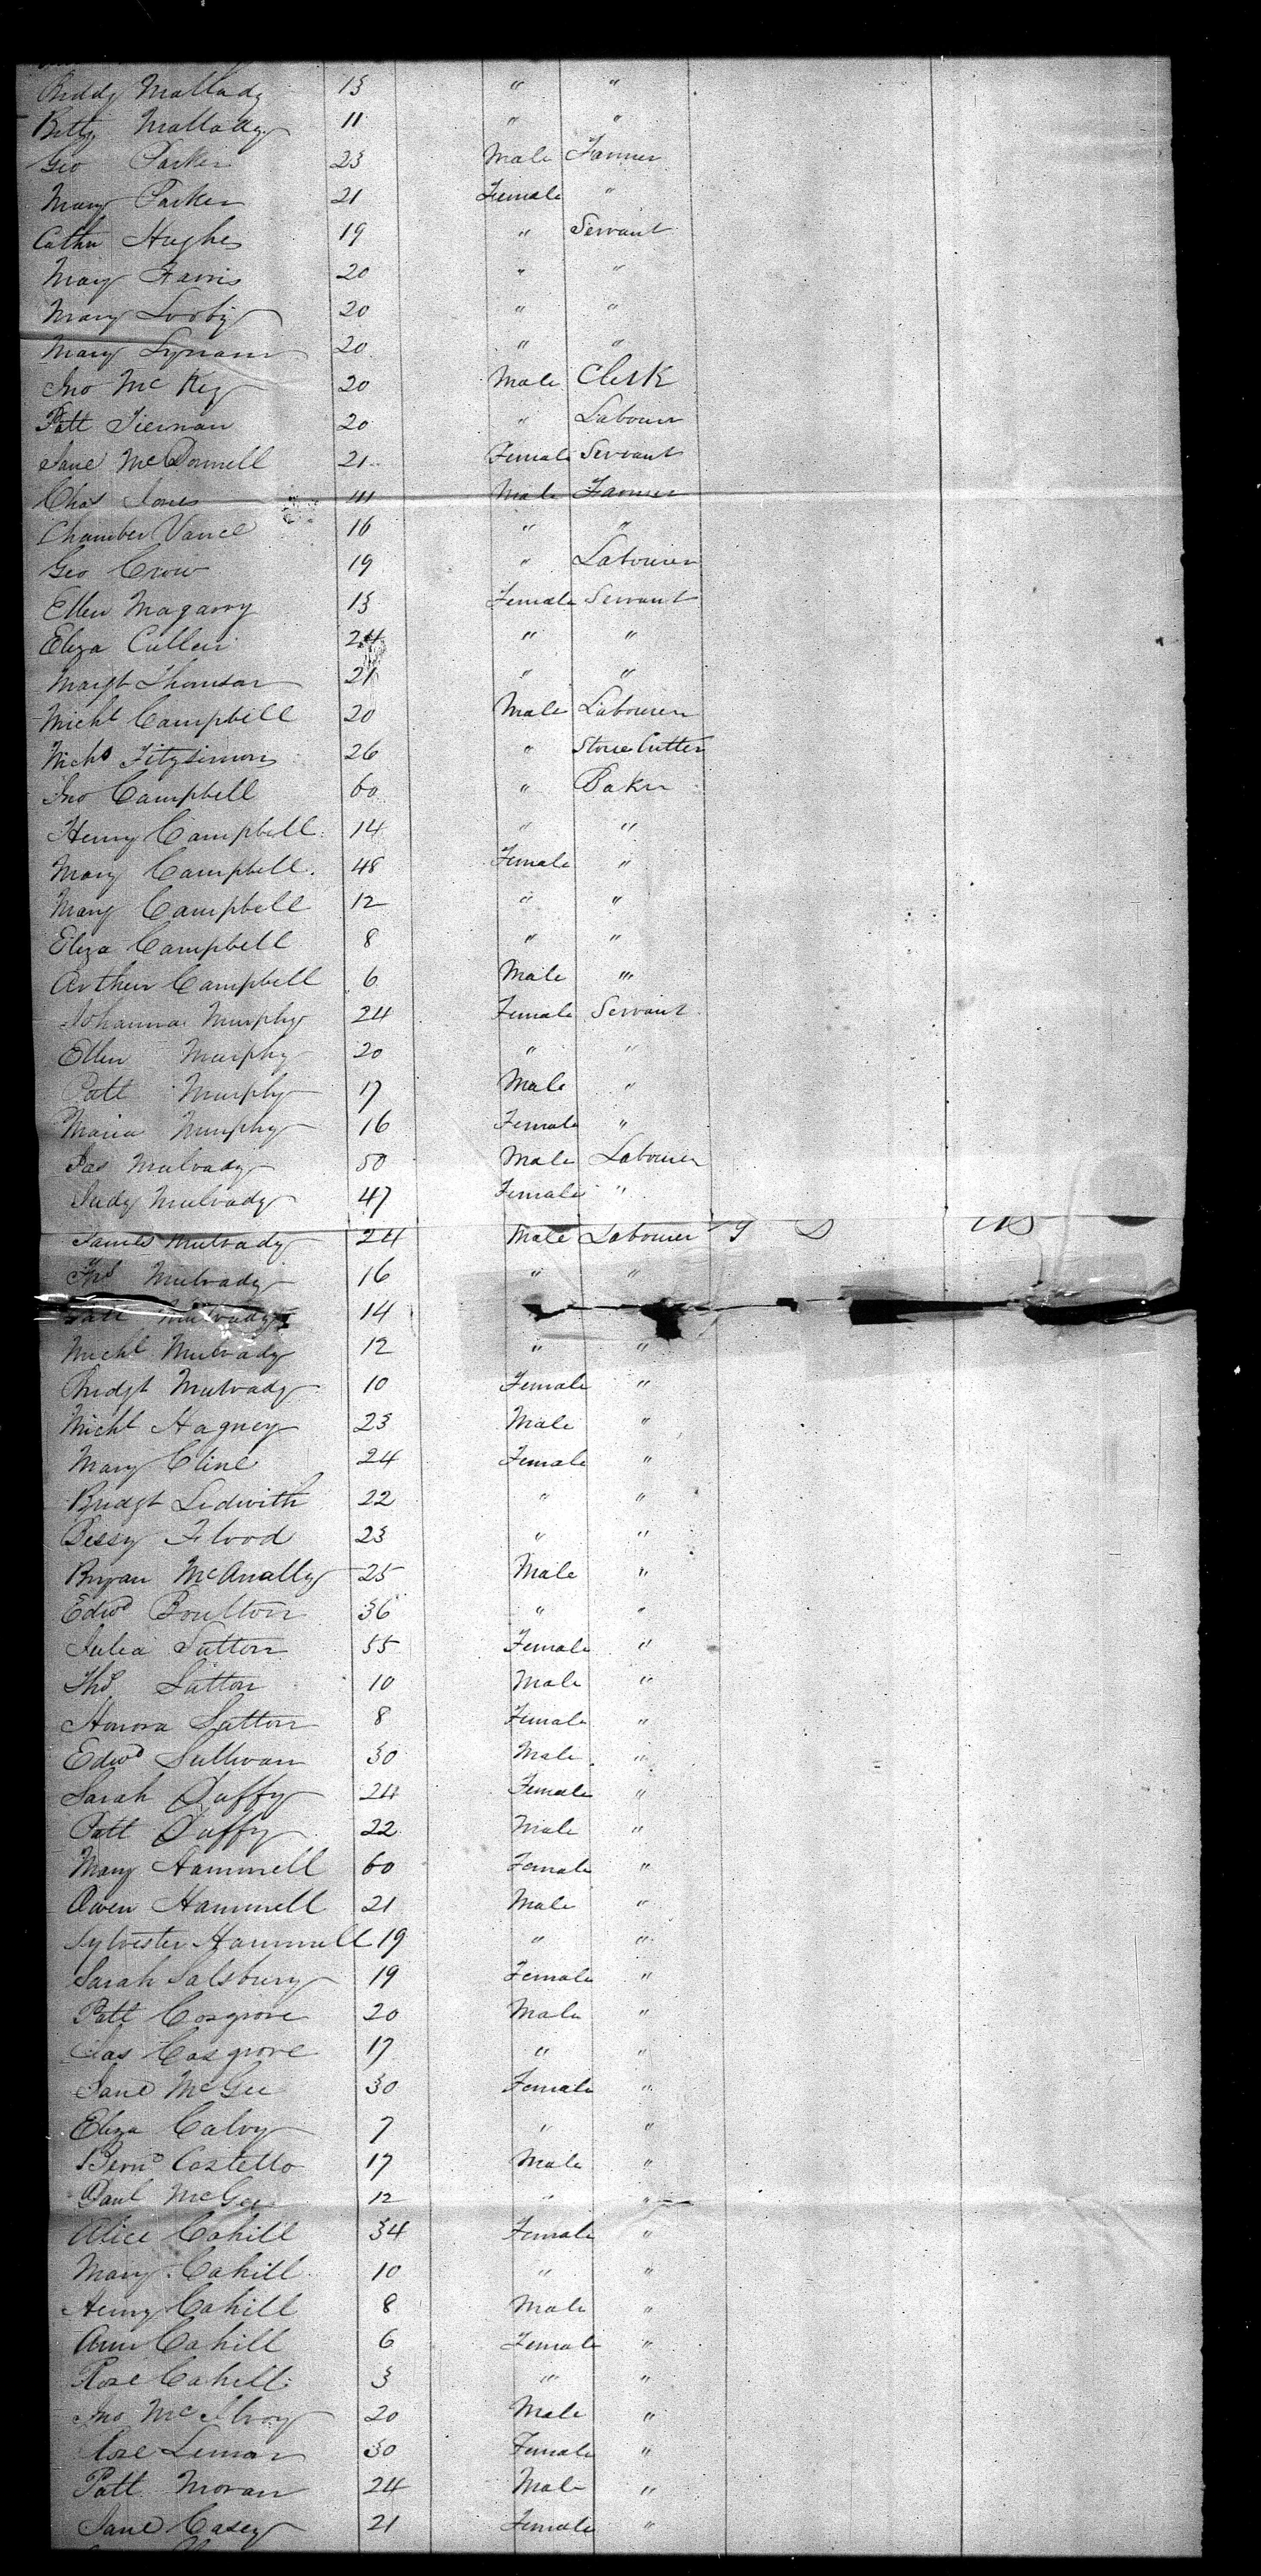 Biddy Mallady 13 " "
Betty Mallady 11 " "
Geo Parker 23 Male Farmer
Mary Parker 21 Female "
Cathn Hughes 19 " Servant
Mary Farris 20 " "
Mary Looby 20 " "
Mary Lynam 20 " "
Jno McKey 20 Male Clerk
Patt Tiernan 20 " Labourer
Jane McDonnell 21 Female Servant
Chas Jones Male Farmer
Chamber Vance 16 " "
Geo Crow 19 " Labourer
Ellen Magarry 13 Female Servant
Eliza Cullen 24 " "
Margt Thomson 21 " "
Michl Campbell 20 Male Labourer
Nichs Fitzsimons 26 " Stone Cutter
Jno Campbell 60 " Baker
Henry Campbell 14 " "
Mary Campbell 48 Female "
Mary Campbell 12 " "
Eliza Campbell 8 " "
Arthur Campbell 6 Male "
Johanna Murphy 24 Female Servant
Ellen Murphy 20 " "
Patt Murphy 17 Male "
Maria Murphy 16 Female "
Jas Mulvady 50 Male Labourer
Judy Mulvady 47 Female "
James Mulvady 24 Male Labourer
Ths Mulvady 16 " "
Patt Mulvady 14
Michl Mulvady 12 " "
Bridgt Mulvady 10 Female "
Michl Hagney 23 Male "
Mary Cline 24 Female "
Bridgt Ledwith 22 " "
Bessy Flood 23 " "
Bryan McAnally 25 Male "
Edwd Boulton 36 " "
Julia Sutton 55 Female "
Ths Sutton 10 Male "
Honora Sutton 8 Female "
Edwd Sullivan 30 Male "
Sarah Duffy 24 Female "
Patt Duffy 22 Male "
Mary Hammell 60 Female "
Owen Hammell 21 Male "
Sylvester Hammell 19 " "
Sarah Salsbury 19 Female "
Patt Cosgrove 20 Male "
Jas Cosgrove 17 " "
Jane McGee 30 Female "
Eliza Calvy 7 " "
Bernd Costello 17 Male "
Paul McGee 12 " "
Alice Cahill 34 Female "
Mary Cahill 10 " "
Henry Cahill 8 Male "
Ann Cahill 6 Female "
Rose Cahill 3 " "
Jno McIlroy 20 Male "
Rose Lemon 30 Female "
Patt Moran 24 Male "
Jane Casey 21 Female "